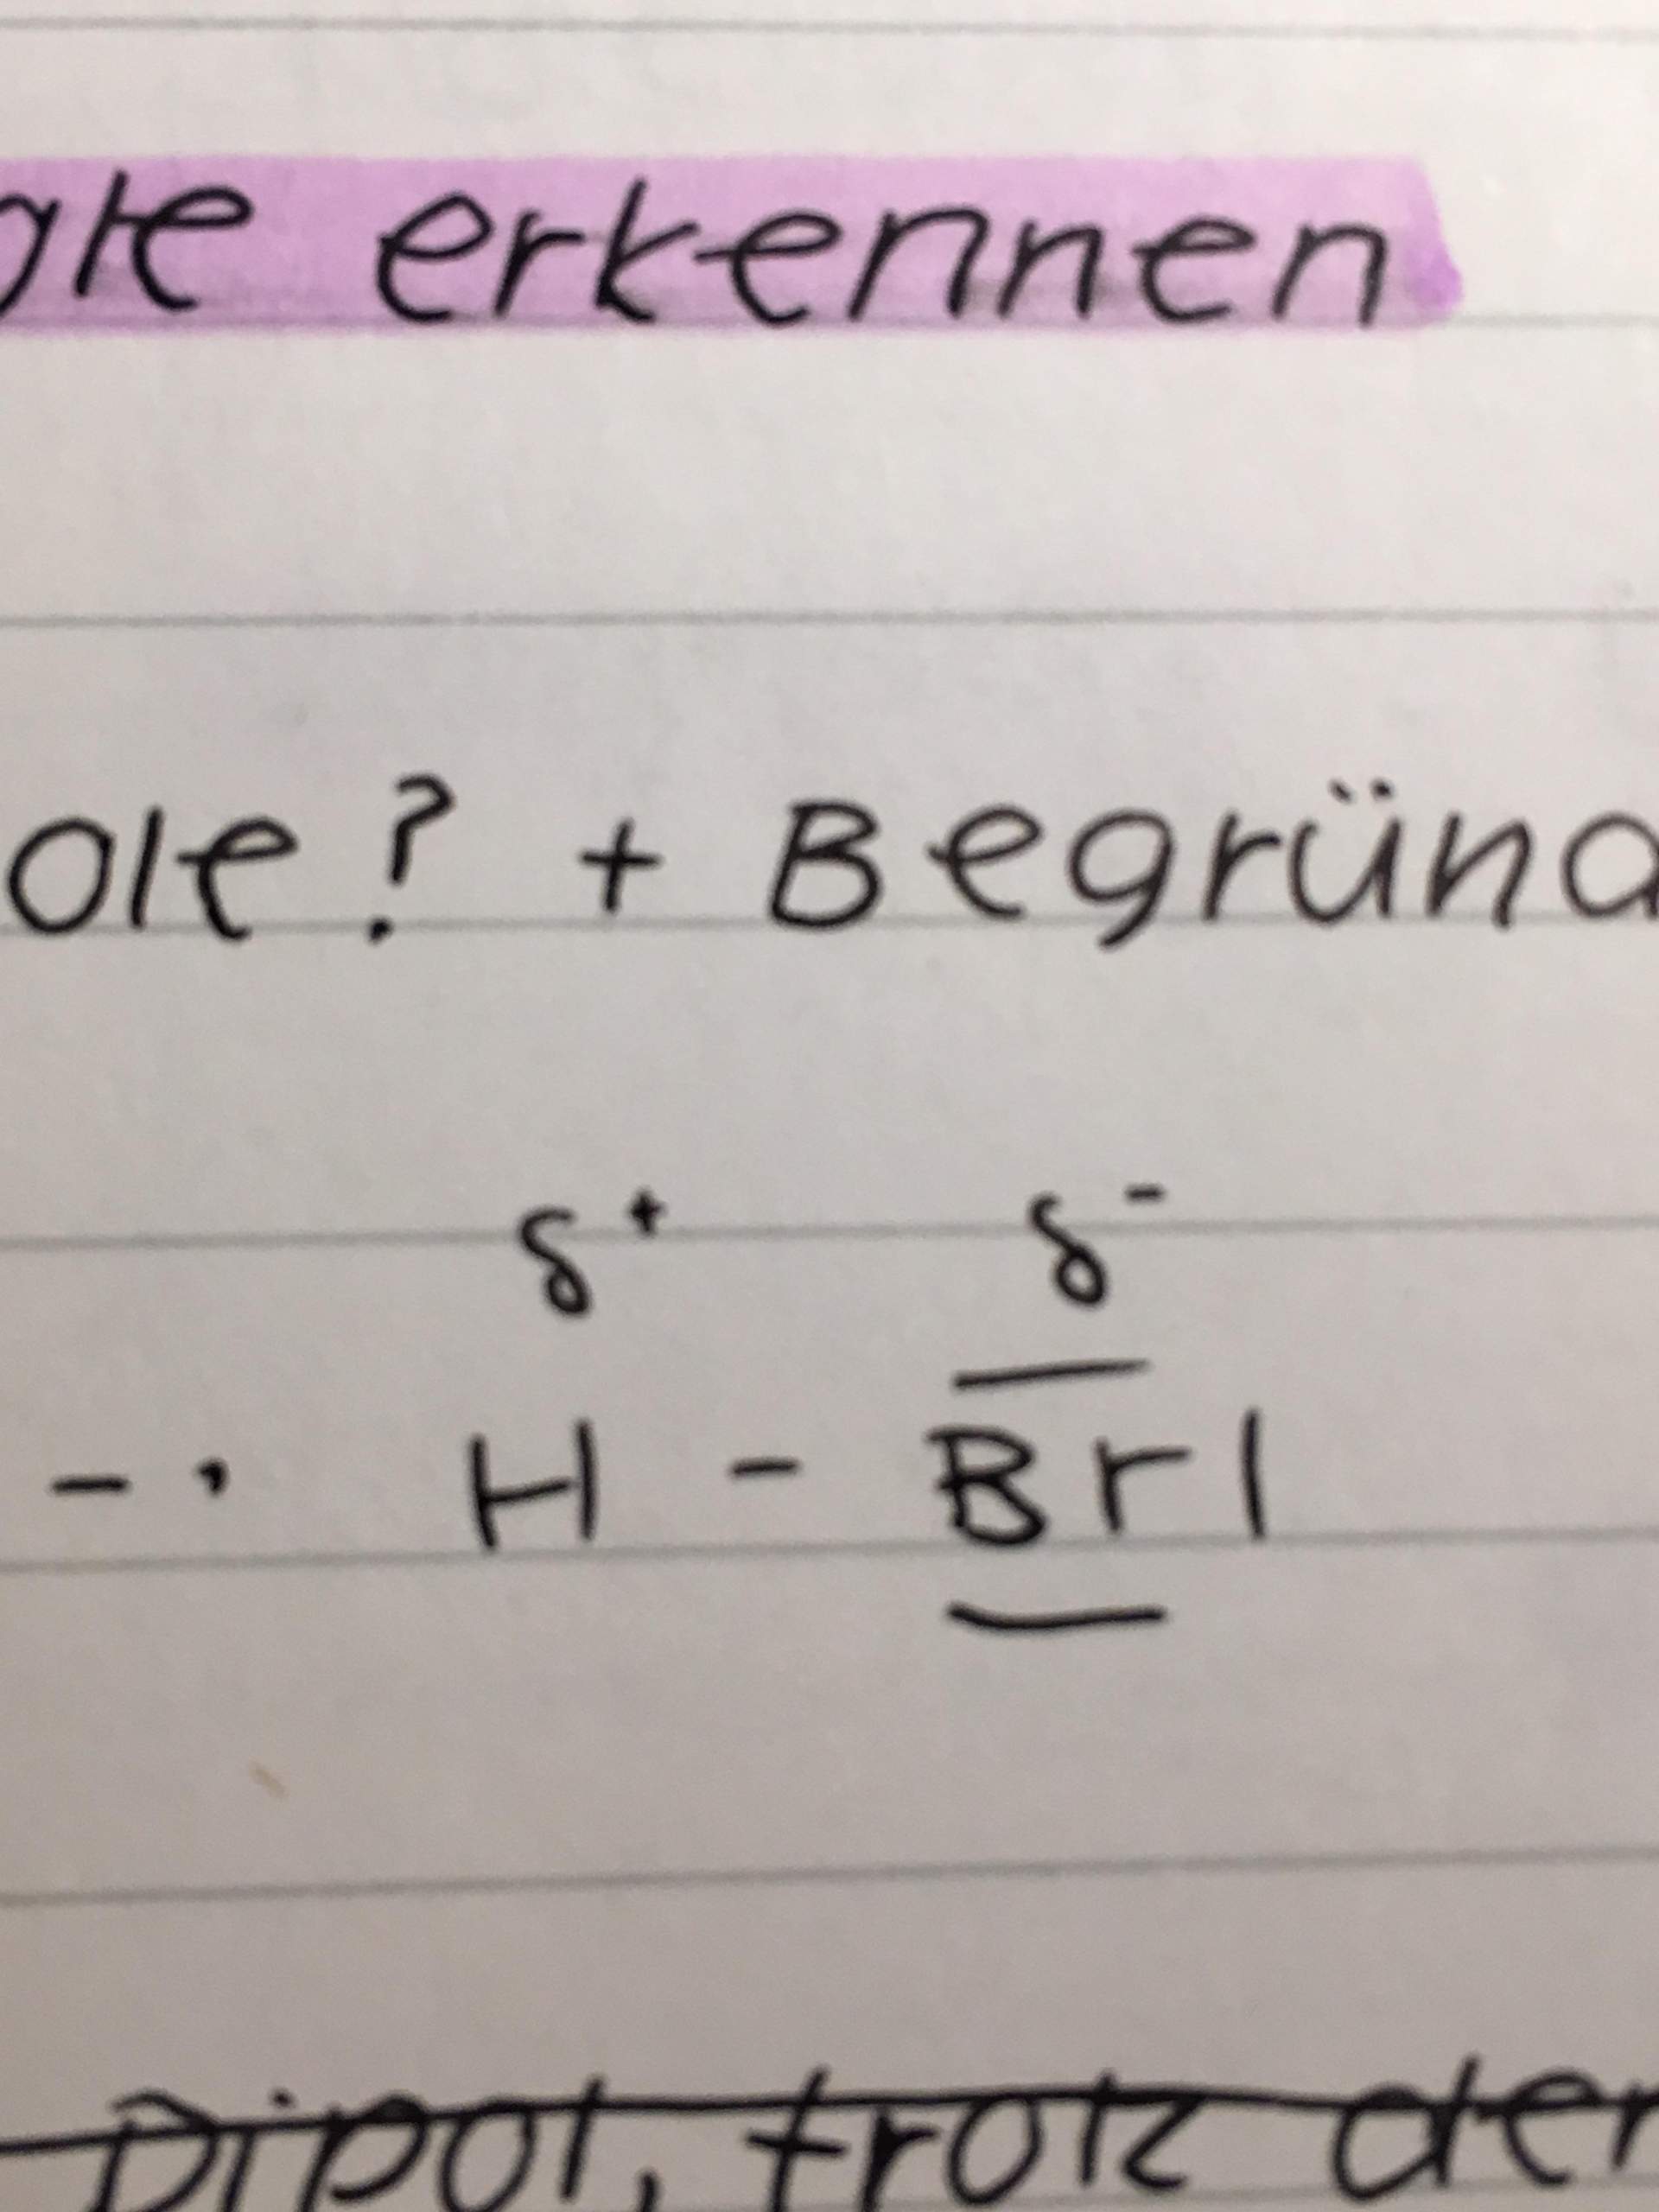 gte erkennen
ole? + Begründ
δ+ δ-
-. H - Br|
Dipol, trotz der